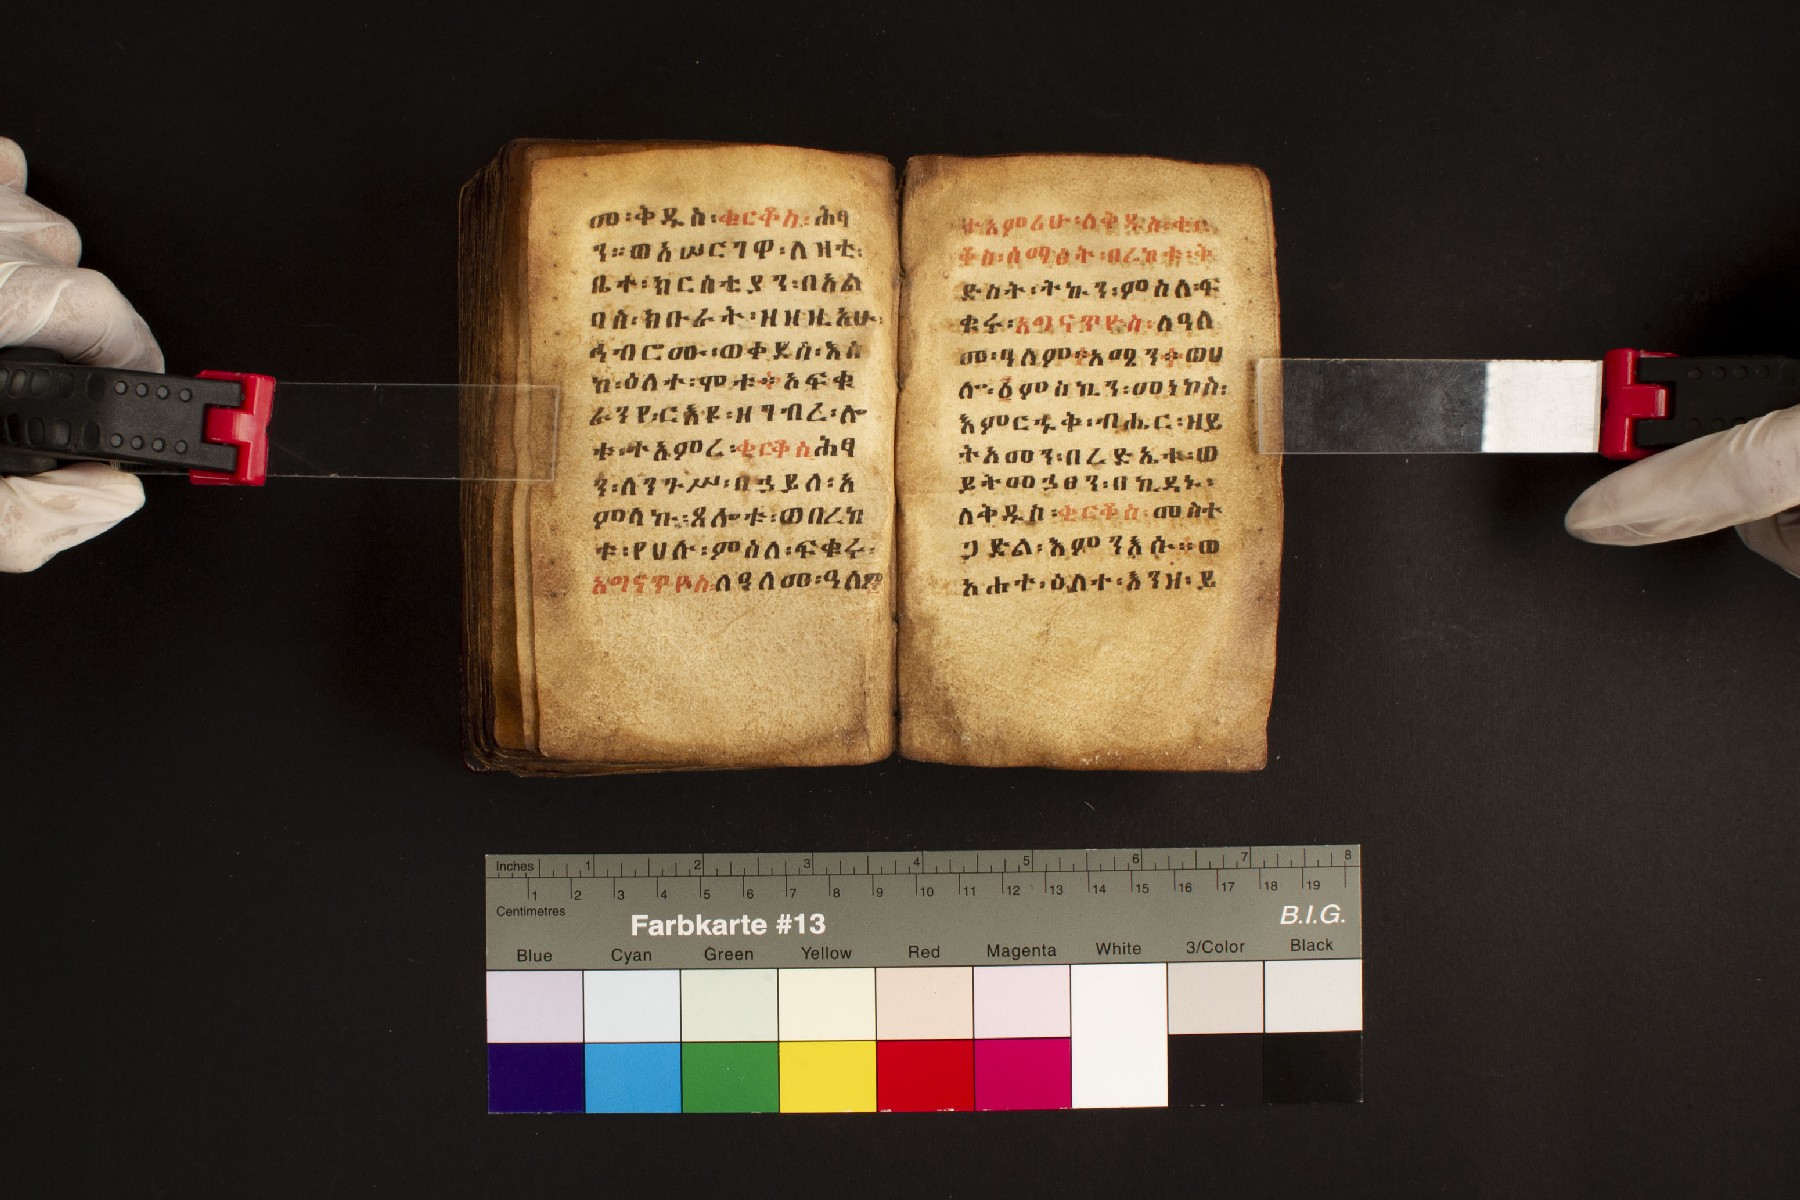 መ፡ቅዱስ፡ቂርቆስ፡ሕፃ
ን። ወአሠርገዋ፡ለዛቲ፡
ቤተ፡ክርስቲያን፡በአል
ባስ፡ክቡራት፡
ወቀደሰ፡እስ
ከ፡ዕለተ፡ሞቱ፡አፍቁ
ራንየ፡ርእዩ፡ዘገብረ፡ሎ
ቱ፡ተአምረ፡ቂርቆስ፡ሕፃ
ን፡ለንጉሥ፡በኃይለ፡አ
ምላኩ፡ጸሎቱ፡ወበረከ
ቱ፡የሀሉ፡ምስለ፡ፍቁሩ፡
አግናጥዮስ፡ለዓለመ፡ዓለም
ተአምሪሁ፡ለቅዱስ፡ቂር
ቆስ፡ሰማዕት፡በረከቱ፡ቅ
ድስት፡ትኩን፡ምስለ፡ፍ
ቁሩ፡አግናጥዮስ፡ለዓለ
መ፡ዓለም፡አሜን፡ወሀ
ሎ፡፩ምስኪን፡መነኮስ፡
እምርኁቅ፡ብሔር፡ዘይ
ትአመን፡በረድኤቱ፡ወ
ይትመኃፀን፡በኪዳኑ፡
ለቅዱስ፡ቂርቆስ፡መስተ
ጋድል፡እምንእሱ። ወ
አሐተ፡ዕለተ፡እንዘ፡ይ
Inches 1 2 3 4 5 6 7 8
1 2 3 4 5 6 7 8 9 10 11 12 13 14 15 16 17 18 19
Centimetres
Farbkarte #13
B.I.G.
Blue Cyan Green Yellow Red Magenta White 3/Color Black